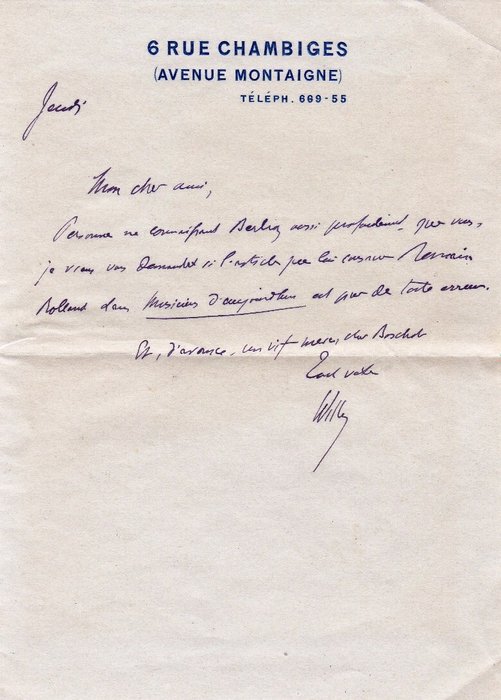 6 RUE CHAMBIGES
(AVENUE MONTAIGNE)
TÉLÉPH. 669-55
Jeudi
Mon cher ami,
Personne ne connaissant Berlioz aussi profondément que vous,
je viens vous demander si l'article que lui consacre Romain
Rolland dans Musiciens d'aujourd'hui est pur de toute erreur.
Et, d'avance, un vif merci, cher Boschot
Tout vôtre
Willy